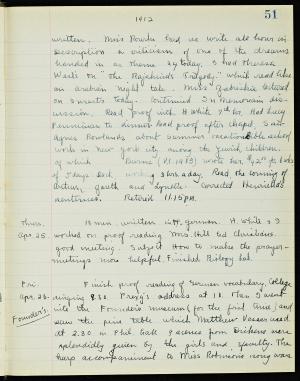 1912
51
written. Miss Fowler had us write all hour in
description a criticism of one of the dreams
handed in as theme 27 today. I had Theresa
on "The Rajahbird's Tragedy." which read like
an arabian night tale. Miss lectured
on insects today. Continued In Memoriam dis-
cussion. Read proof with H White 7th hr. Had
to dinner. Had proof after chapel. Saw
Agnes Rowlands about summer vacation Bible school
work in new york city among the Jewish children,
of which wrote her,
of 5 days each, 3 hrs a day. Read the Coming of
Arthur, Gareth and Lynette. Corrected Henrietta's
sentences. Retired 11:15 p.m.
Thurs.
Apr. 25.
18 min. written in H. german. H. White & I
worked on proof reading. Mrs. Hill led Christians.
good meeting. Subject How to make the prayer-
meetings more helpful. Finished Biology lab.
Fri.
Apr. 26.
Founder's.
Finish proof reading of German vocabulary. College
singing 8.30. Prexy's address at 10. Then I went
into the Founder's museum (for the first time) and
saw the pine table which Matthew Vassar used
at 2.30 in Phil. Hall 9 scenes from Dickens were
splendidly given by the girls and faculty. The
harp accompaniment to Miss song was